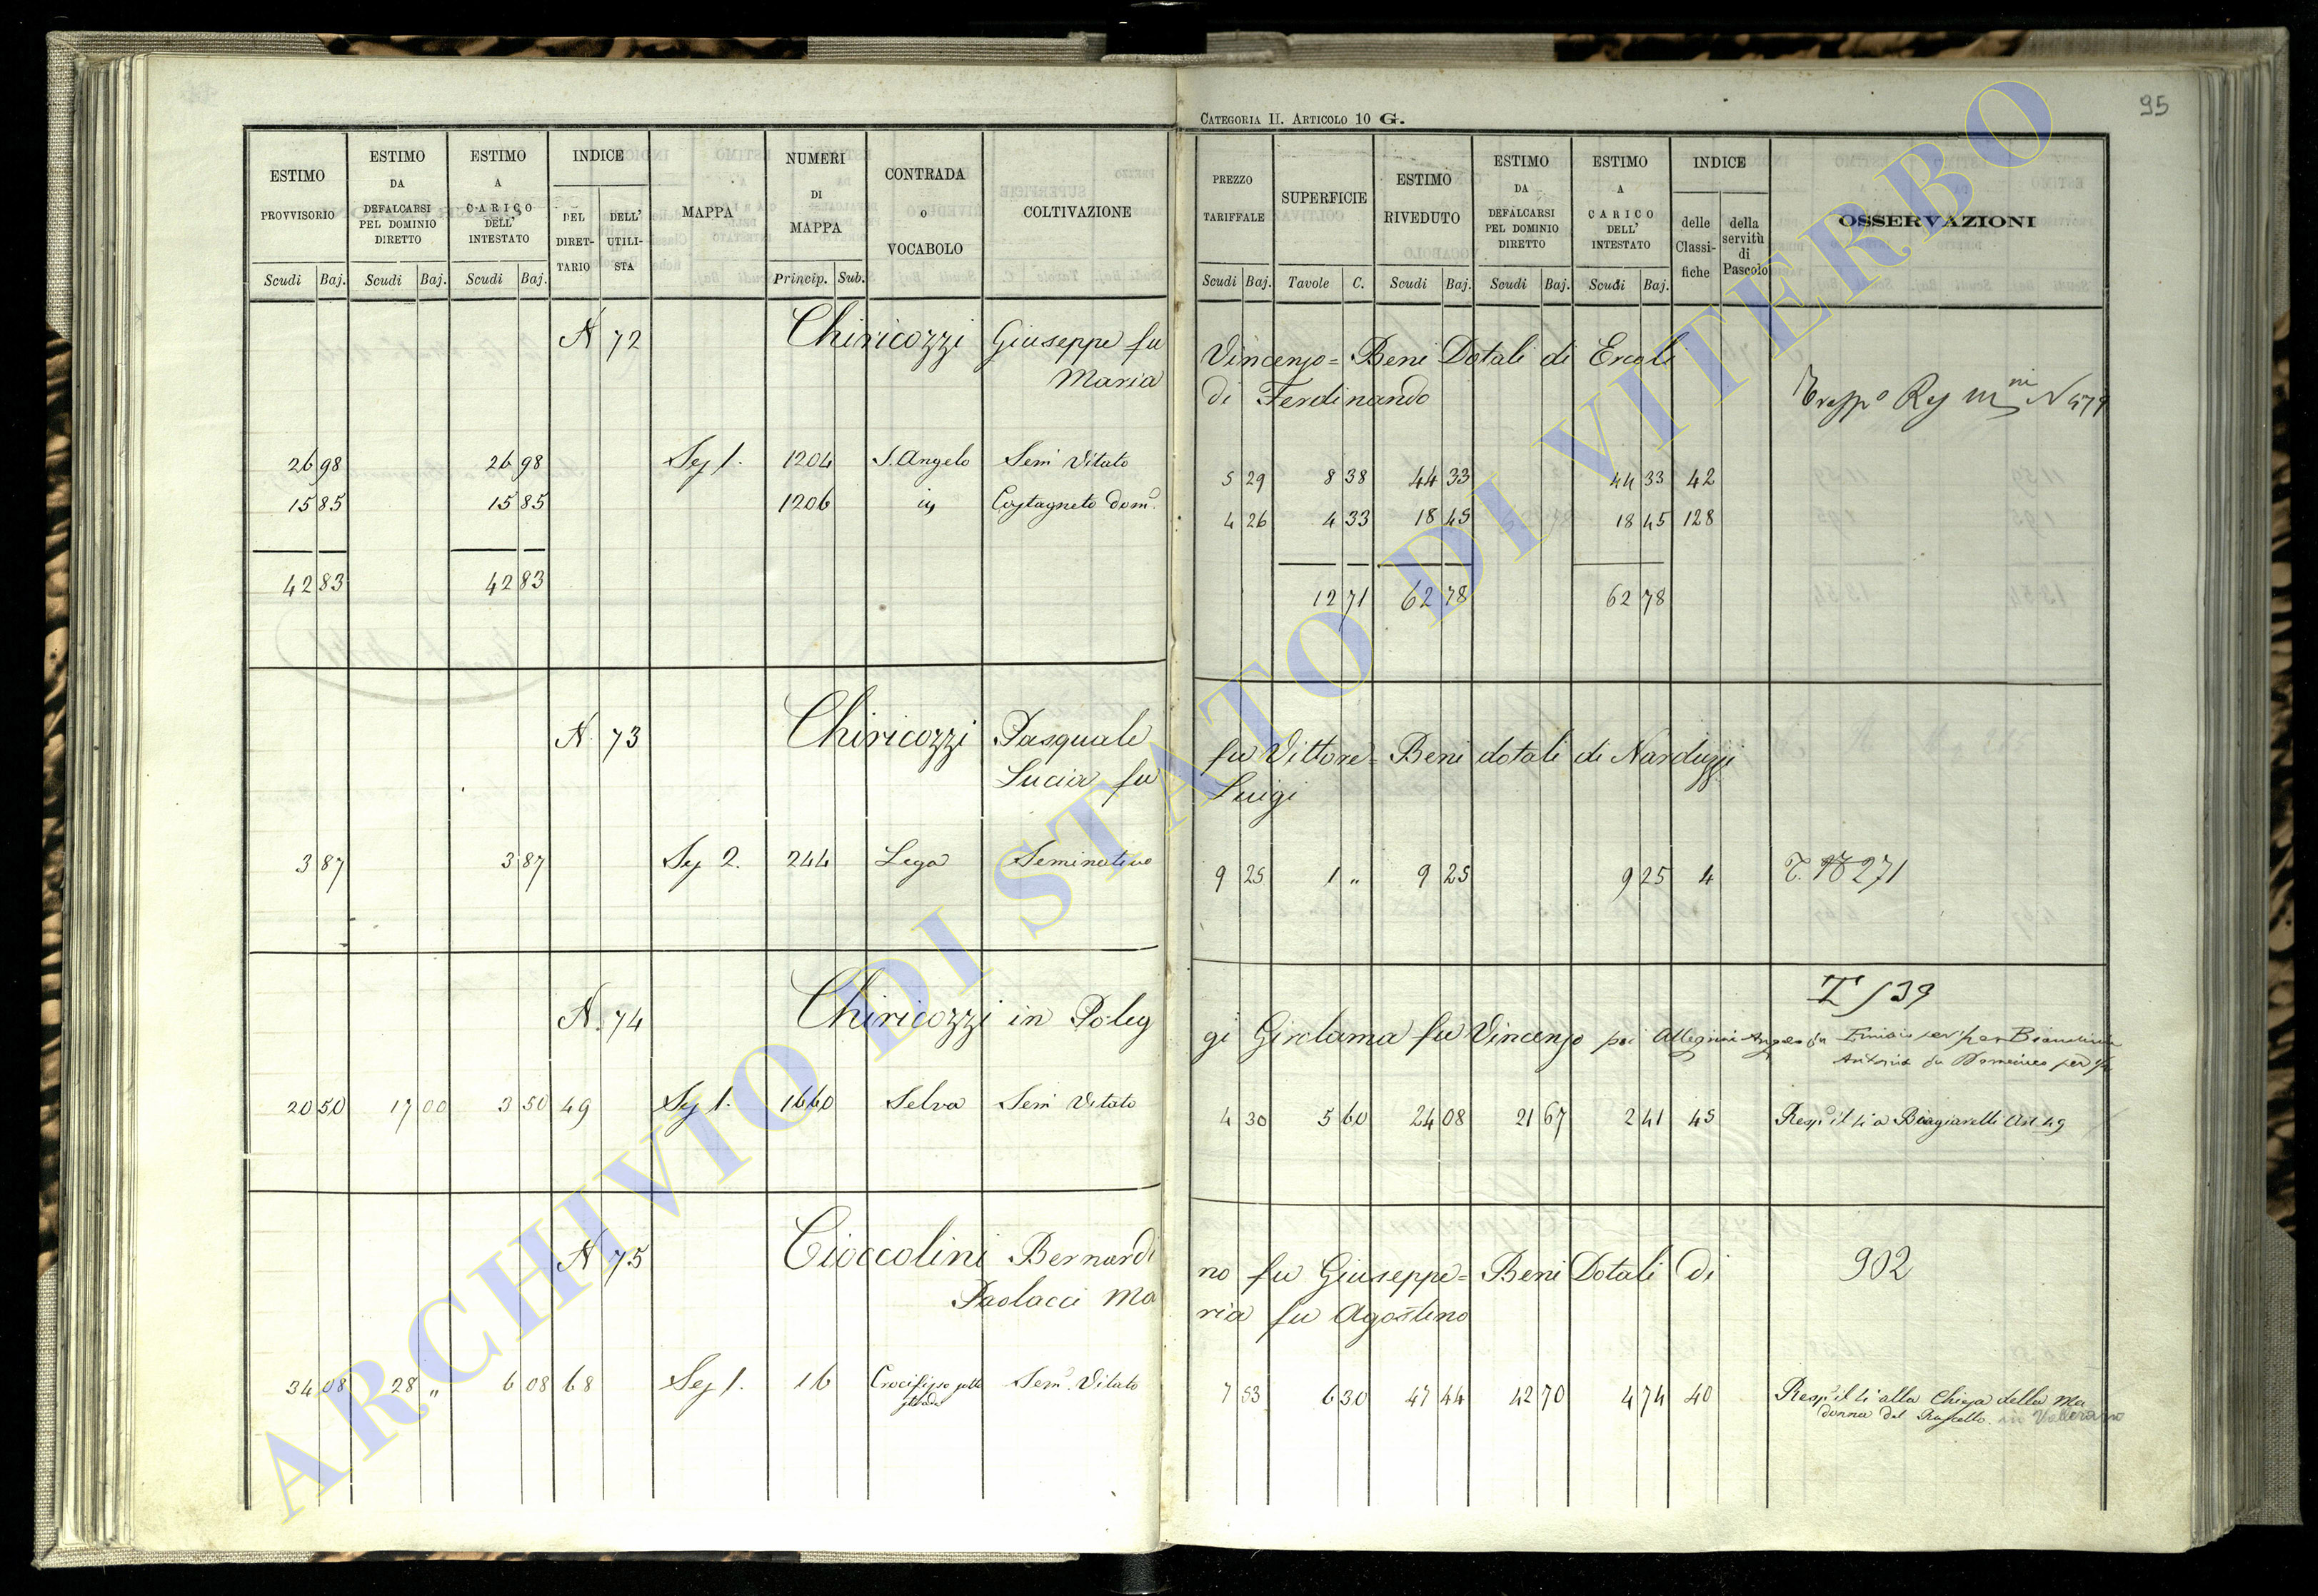 95
CATEGORIA II. ARTICOLO 10 G.
ESTIMO PROVVISORIO
ESTIMO DA DEFALCARSI PEL DOMINIO DIRETTO
ESTIMO A CARICO DELL' INTESTATO
INDICE
DEL DIRET-TARIO
DELL' UTILI-STA
MAPPA
NUMERI DI MAPPA
CONTRADA o VOCABOLO
COLTIVAZIONE
PREZZO TARIFFALE
SUPERFICIE
ESTIMO RIVEDUTO
ESTIMO DA DEFALCARSI PEL DOMINIO DIRETTO
ESTIMO A CARICO DELL' INTESTATO
INDICE
delle Classi-fiche
della servitù di Pascolo
OSSERVAZIONI
Scudi Baj. Scudi Baj. Scudi Baj. Princip. Sub. Scudi Baj. Tavole C. Scudi Baj. Scudi Baj. Scudi Baj.
N 72 Chiricozzi Giuseppe fu Vincenzo = Beni Dotali di Ercoli
Maria di Ferdinando
N 479
26 98 26 98 Sez 1. 1204 S. Angelo Sem Vitato 5 29 8 38 44 33 44 33 42
15 85 15 85 1206 Castagneto dom. 4 26 4 33 18 45 18 45 128
42 83 42 83 12 71 62 78 62 78
N. 73 Chiricozzi Pasquale fu Vittore = Beni dotali di Narduzzi
Lucia fu Luigi
3 87 3 87 Sez 2. 244 Lega Seminativo 9 25 1 " 9 25 9 25 4 T. 271
T 539
N. 74 Chiricozzi in Poleggi Girolama fu Vincenzo poi Allegrini Angelo fu
Antonia fu Domenico per
20 50 17 00 3 50 49 Sez 1. 1660 Selva Sem Vitato 4 30 5 60 24 08 21 67 2 41 45 Resp. il li a Biagiarelli Art 49
N 75 Cioccolini Bernardino fu Giuseppe = Beni Dotali di 902
Paolacci Maria fu Agostino
34 08 28 " 6 08 68 Sez 1. 16 Crocifisso sotto strada Sem. Vitato 7 53 6 30 47 44 42 70 4 74 40 Resp. il li alla Chiesa della Ma
donna del Ruscello in Vallerano
ARCHIVIO DI STATO DI VITERBO